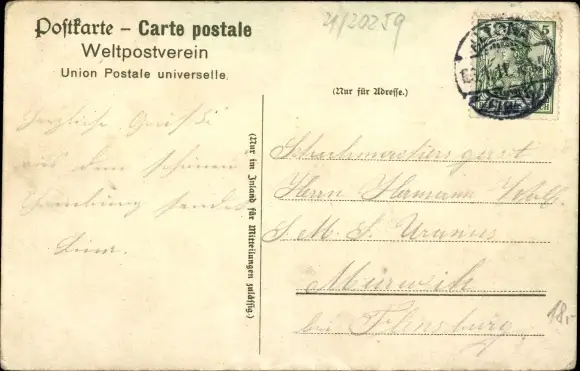 21/20259
Postkarte – Carte postale
Weltpostverein
Union Postale universelle.
5
ALTONA
(ELBE)
(Nur für Adresse.)
Herzliche Grüße
aus dem schönen
Hamburg sendet
(Nur im Inland für Mitteilungen zulässig.)
Herrn Hermann
S. M. S. Uranus
Mürwik
bei Flensburg.
18,-